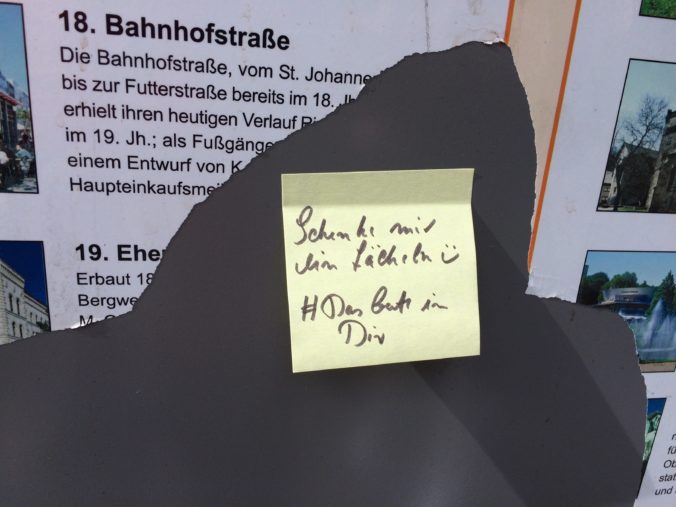 18. Bahnhofstraße
Die Bahnhofstraße, vom St. Johanne
bis zur Futterstraße bereits im 18. Jh
erhielt ihren heutigen Verlauf Ri
im 19. Jh.; als Fußgänge
einem Entwurf von K
Haupteinkaufsmei
19. Ehe
Erbaut 18
Bergwe
Schenke mir
dein Lächeln
#Das Gute in
Dir